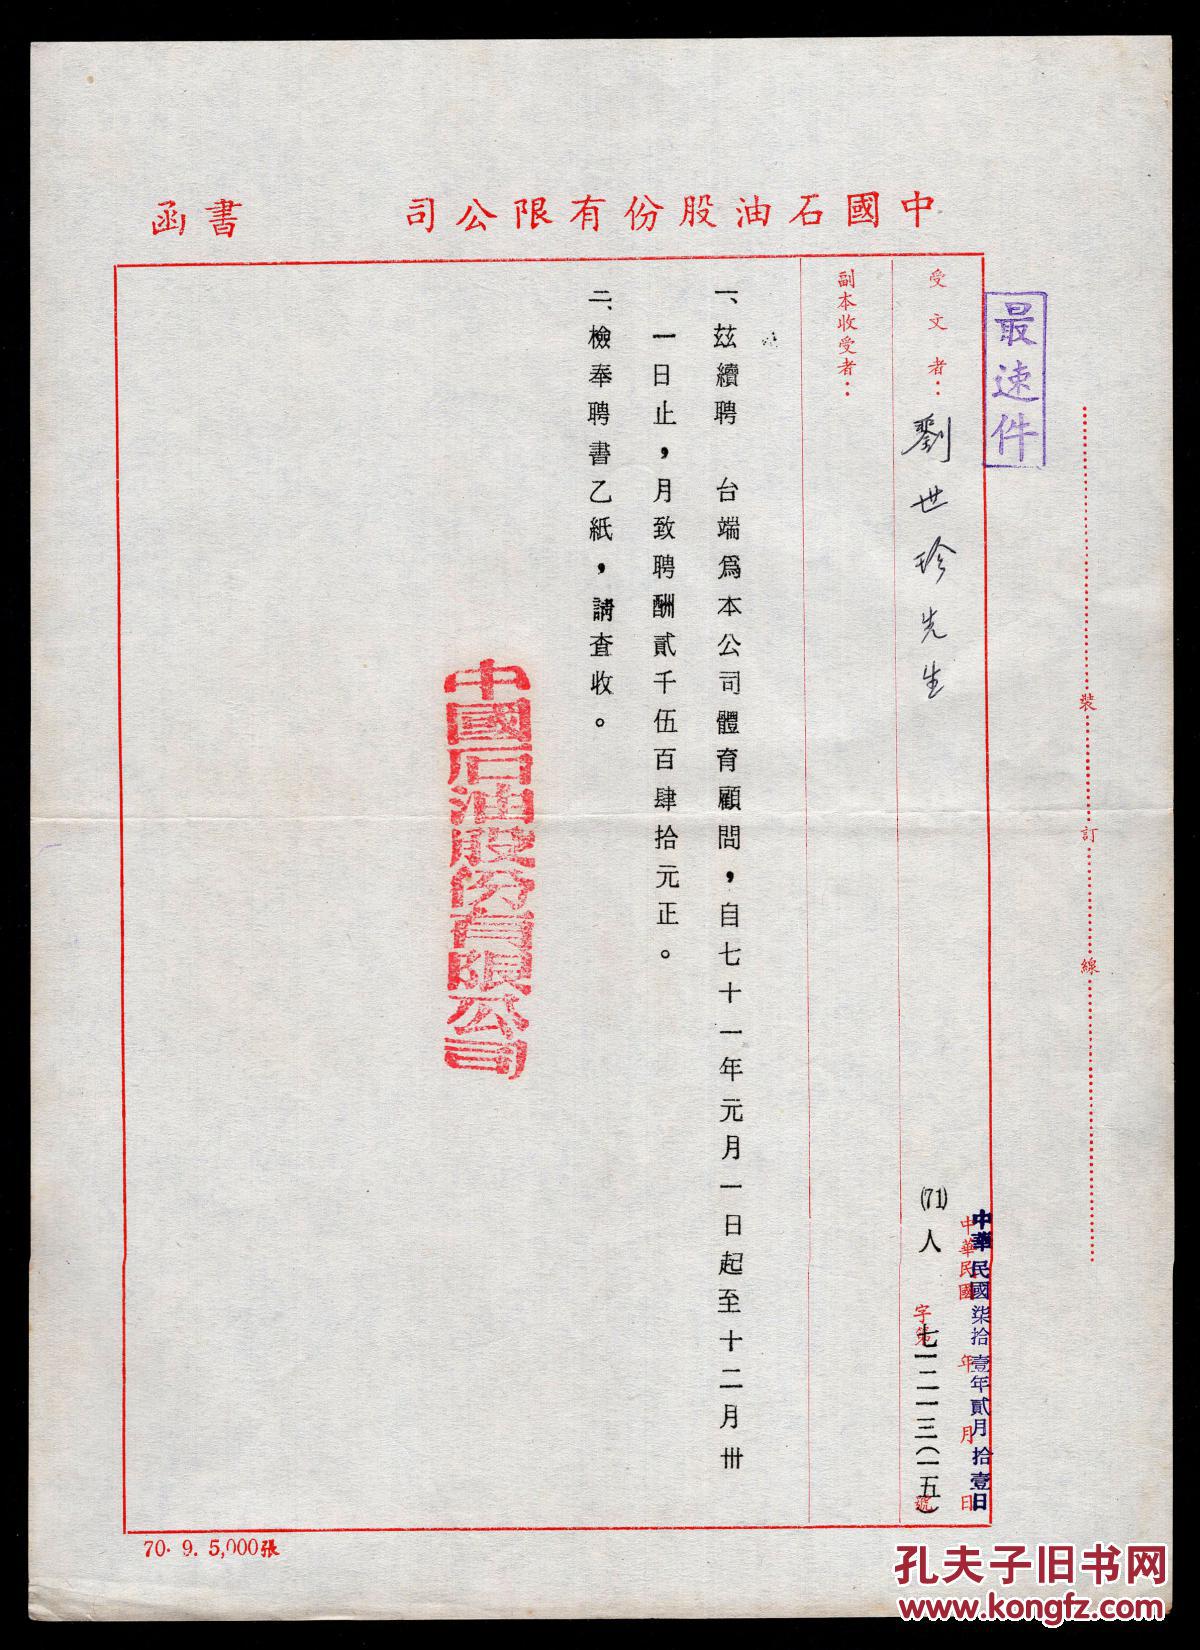 中國石油股份有限公司 書函
最速件
裝訂線
中華民國 年 月 日
中華民國柒拾壹年貳月拾壹日
受文者：劉世珍先生
(71)人 字第七一二一三(一五)號
副本收受者：
一、茲續聘 台端爲本公司體育顧問，自七十一年元月一日起至十二月卅
一日止，月致聘酬貳千伍百肆拾元正。
二、檢奉聘書乙紙，請查收。
中國石油股份有限公司
70. 9. 5,000張
孔夫子旧书网
www.kongfz.com